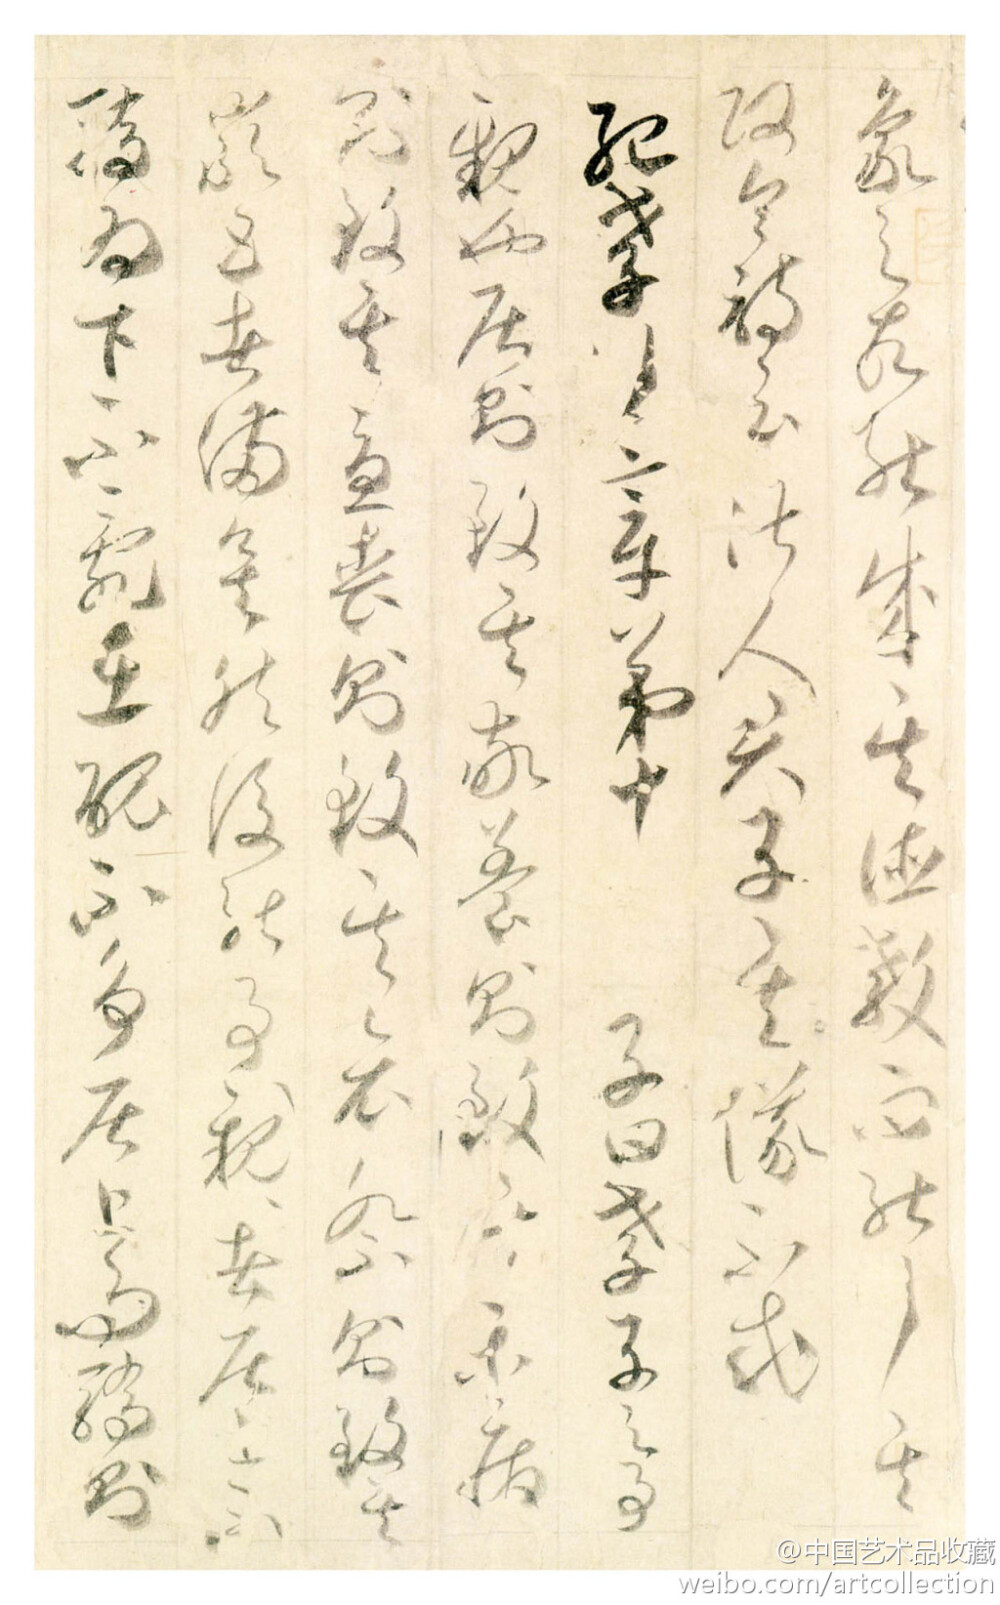 象之故能成其德教而行
政令詩云淑人君子其儀不忒
紀孝行章第十 子曰孝子之事
親也居則致其敬養則致其樂病
則致其憂喪則致其哀祭則致其
嚴五者備矣然後能事親事親者居上不
驕為下不亂在醜不爭居上而驕則
@中国艺术品收藏
weibo.com/artcollection